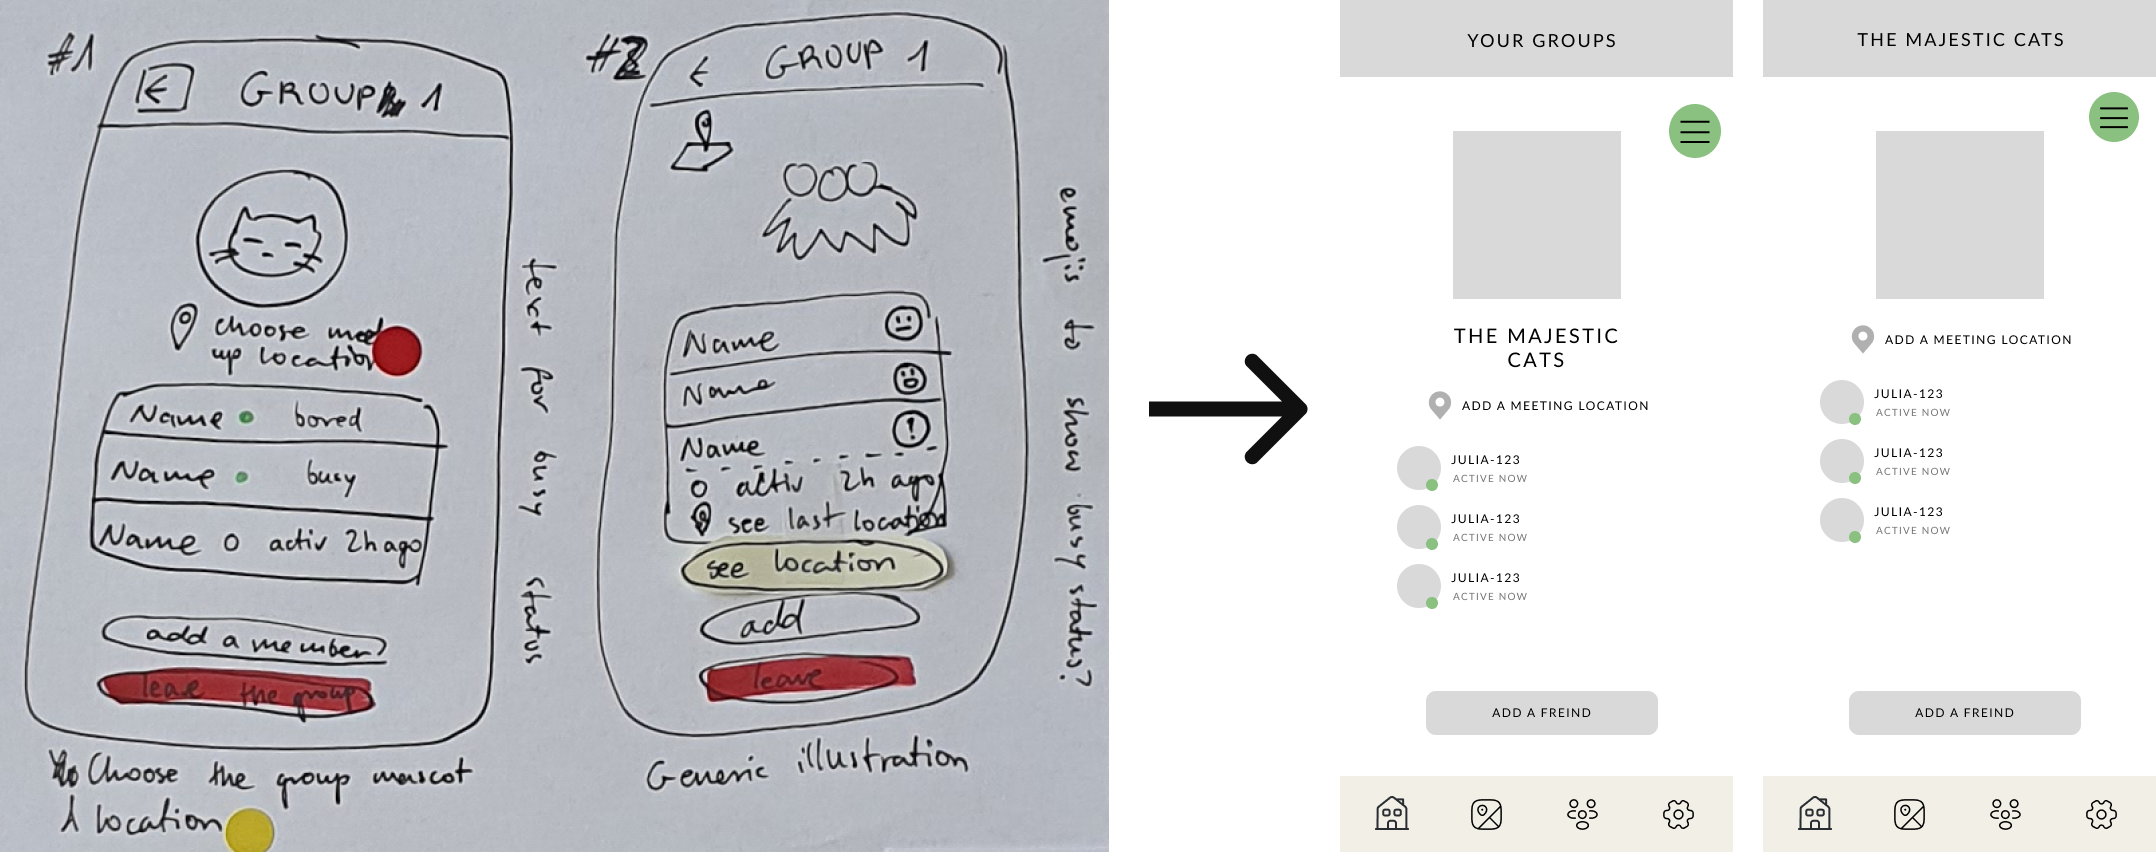 #1
GROUP 1
choose meet
up location
Name bored
Name busy
Name activ 2h ago
add a member?
leave the group
text for busy status
Choose the group mascot
location
#2
GROUP 1
Name
Name
Name
activ 2h ago
see last location
see location
add
leave
emojis to show busy status?
Generic illustration
YOUR GROUPS
THE MAJESTIC
CATS
ADD A MEETING LOCATION
JULIA-123
ACTIVE NOW
JULIA-123
ACTIVE NOW
JULIA-123
ACTIVE NOW
ADD A FREIND
THE MAJESTIC CATS
ADD A MEETING LOCATION
JULIA-123
ACTIVE NOW
JULIA-123
ACTIVE NOW
JULIA-123
ACTIVE NOW
ADD A FREIND